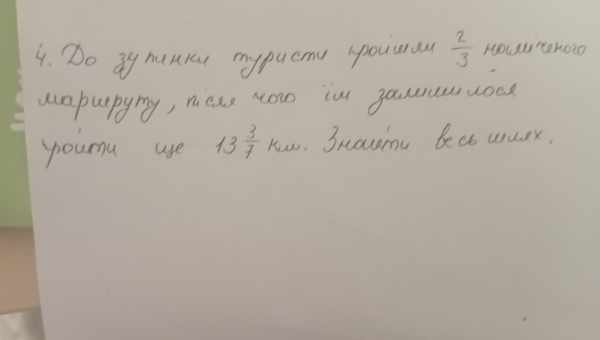 4. До зупинки туристи пройшли 2/3 наміченого
маршруту, після чого їм залишилося
пройти ще 13 3/7 км. Знайти весь шлях.